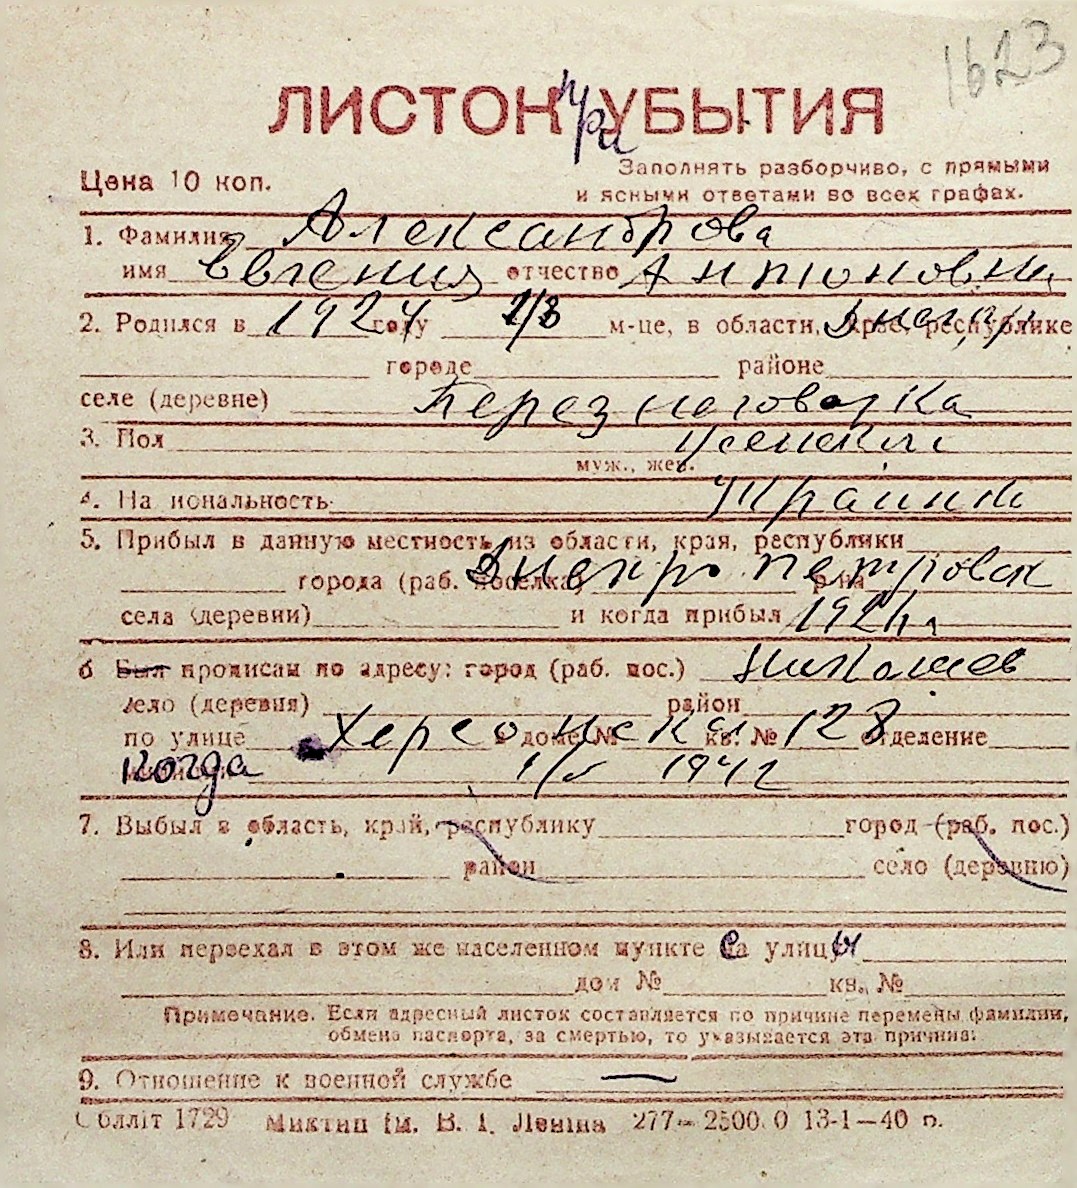 1623
ЛИСТОК при УБЫТИЯ
Цена 10 коп.
Заполнять разборчиво, с прямыми
и ясными ответами во всех графах.
1. Фамилия Александрова
имя Евгения отчество Антоновна
2. Родился в 1924 году м-це, в области, крае, республике
городе районе
селе (деревне) Березнеговатка
3. Пол женский
муж., жен.
4. На иональность
5. Прибыл в данную местность из области, края, республики
города (раб. поселка) Днепропетровск р-на
села (деревни) и когда прибыл
6 Был прописан по адресу: город (раб. пос.) Николаев
село (деревня) район
по улице Херсонская в доме № кв. № 128 отделение
когда 1942
7. Выбыл в область, край, республику город (раб. пос.)
район село (деревню)
8. Или переехал в этом же населенном пункте са улицы
дом № кв. №
Примечание. Если адресный листок составляется по причине перемены фамилии,
обмена паспорта, за смертью, то указывается эта причина:
9. Отношение к военной службе —
Обллiт 1729 Миктип iм. В. I. Ленiна 277—2500.0 13-1—40 п.